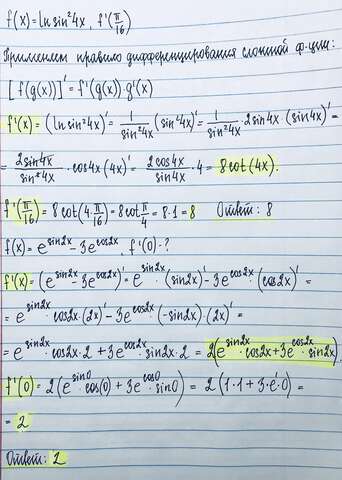 f(x) = ln sin²4x , f'(π/16)
Применяем правило дифференцирования сложной ф-ции:
[f(g(x))]' = f'(g(x))·g'(x)
f'(x) = (ln sin²4x)' = 1/sin²4x · (sin²4x)' = 1/sin²4x · 2sin4x · (sin4x)' =
= 2sin4x/sin²4x · cos4x (4x)' = 2cos4x/sin4x · 4 = 8cot(4x).
f'(π/16) = 8cot(4·π/16) = 8cot π/4 = 8·1 = 8 Ответ: 8
f(x) = e^sin2x − 3e^cos2x , f'(0)·?
f'(x) = (e^sin2x − 3e^cos2x)' = e^sin2x · (sin2x)' − 3e^cos2x · (cos2x)' =
= e^sin2x · cos2x · (2x)' − 3e^cos2x · (−sin2x)·(2x)' =
= e^sin2x · cos2x · 2 + 3e^cos2x · sin2x · 2 = 2(e^sin2x · cos2x + 3e^cos2x · sin2x).
f'(0) = 2(e^sin0 · cos(0) + 3e^cos0 · sin0) = 2(1·1 + 3·e¹·0) =
= 2
Ответ: 2